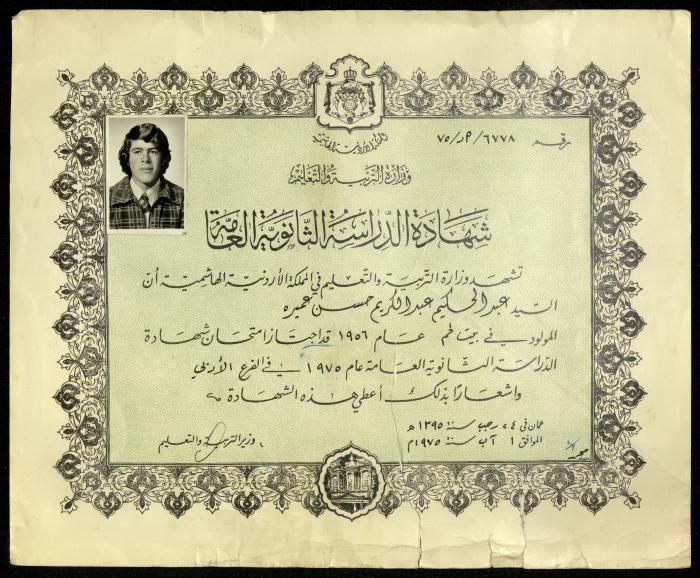 رقم ٦٧٧٨/هـ/٧٥
المملكة الأردنية الهاشمية
وزارة التربية والتعليم
شهادة الدراسة الثانوية العامة
تشهد وزارة التربية والتعليم في المملكة الأردنية الهاشمية أن
السيد عبد الحكيم عبد الكريم حسن عميره
المولود في بيت لحم عام ١٩٥٦ قد اجتاز امتحان شهادة
الدراسة الثانوية العامة عام ١٩٧٥ في الفرع الأدبي
واشعارًا بذلك أعطي هذه الشهادة
عمان في ٢٤ رجب سنة ١٣٩٥ هـ
الموافق ١ آب سنة ١٩٧٥ م
وزير التربية والتعليم